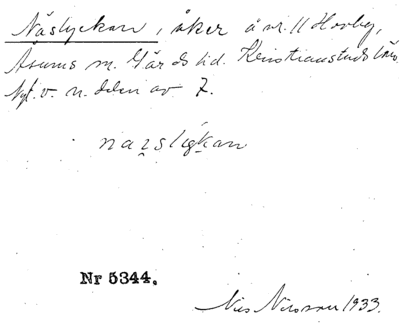 Näslyckan, åker å nr. 11 Horby,
Åsums sn. Gärds hd. Kristianstads län
v. n. delen av 7.
naꝛslykan
Nr 5344.
Nils Nilsson 1933.